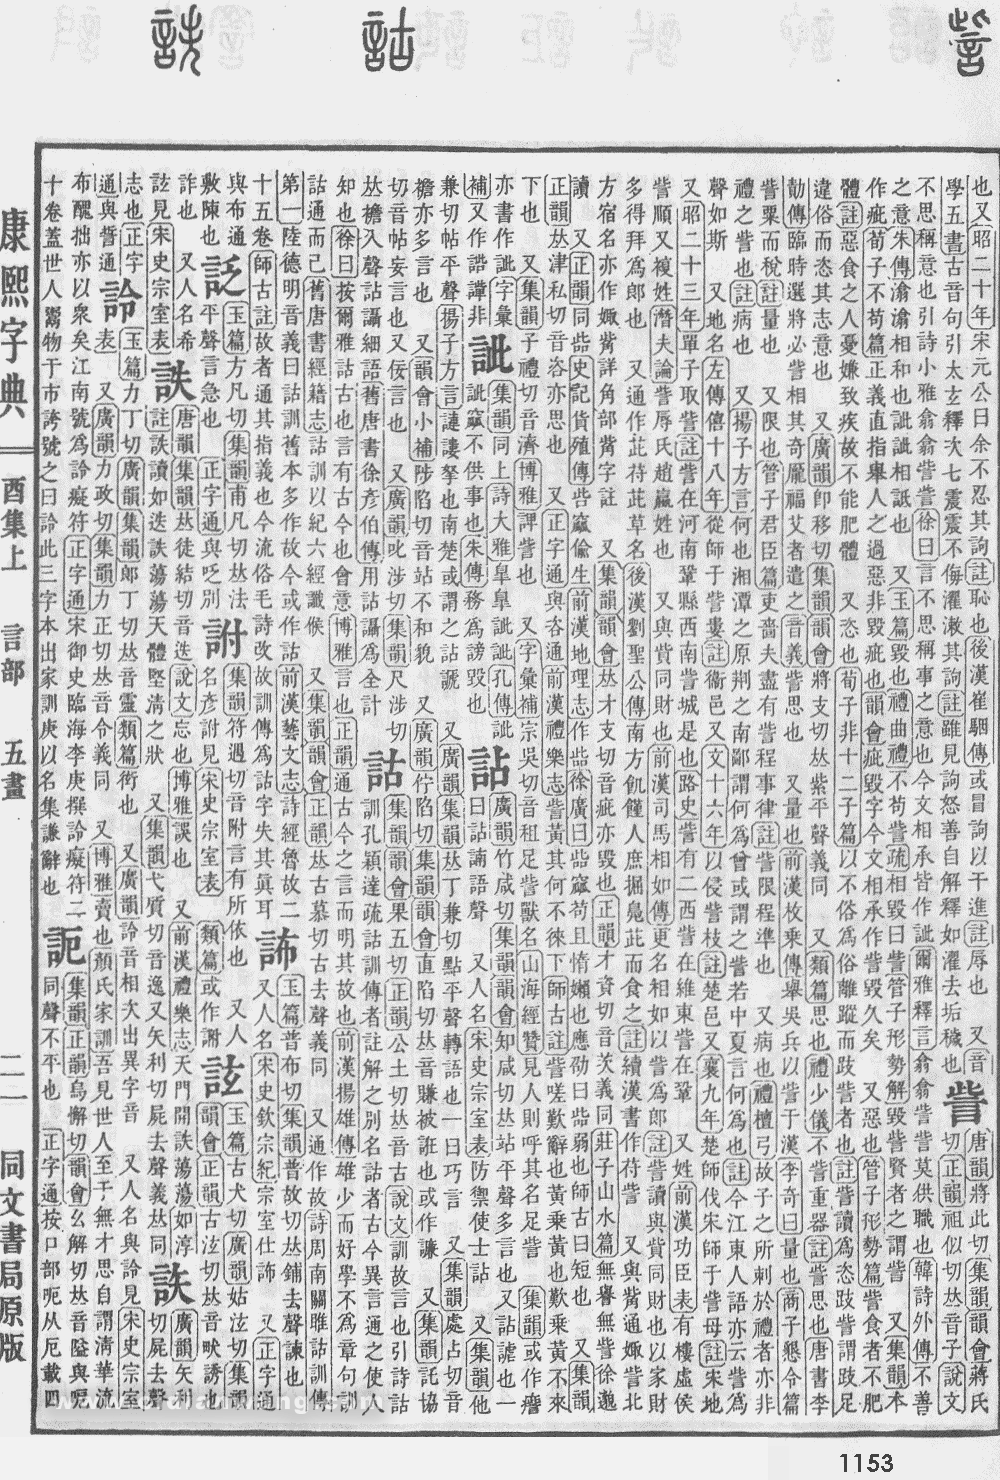 訾
詁
詄
也又昭二十年宋元公曰余不忍其詢註恥也後漢崔駰傳或冒詢以干進註辱也 又音
學五書古音句引太玄釋次七震震不侮濯漱其詢註雖見詢怒善自解釋如濯去垢穢也
訾
唐韻將此切集韻韻會蔣氏
切正韻祖似切𠀤音子說文
不思稱意也引詩小雅翕翕訾訾徐曰言不思稱事之意也今文相承皆作訿爾雅釋言翕翕訾訾莫供職也韓詩外傳不善
之意朱傳潝潝相和也訿訿相詆也 又玉篇毀也禮曲禮不苟訾疏相毀曰訾管子形勢解毀訾賢者之謂訾 又集韻本
作疵荀子不苟篇正義直指舉人之過惡非毀疵也韻會疵毀字今文相承作訾毀久矣 又惡也管子形勢篇訾食者不肥
體註惡食之人憂嫌致疾故不能肥體 又恣也荀子非十二子篇以不俗爲俗離蹤而跂訾者也註訾讀爲恣跂訾謂跂足
違俗而恣其志意也 又廣韻卽移切集韻韻會將支切𠀤紫平聲義同 又類篇思也禮少儀不訾重器註訾思也唐書李
勣傳臨時選將必訾相其奇厖福艾者遣之音義訾思也 又量也前漢枚乗傳舉吳兵以訾于漢李奇曰量也商子懇令篇
訾粟而稅註量也 又限也管子君臣篇吏嗇夫盡有訾程事律註訾限程準也 又病也禮檀弓故子之所刺於禮者亦非
禮之訾也註病也 又揚子方言何也湘潭之原荆之南鄙謂何爲曾或謂之訾若中夏言何爲也註今江東人語亦云訾爲
聲如斯 又地名左傳僖十八年從師于訾婁註衞邑又文十六年以侵訾枝註楚邑又襄九年楚師伐宋師于訾母註宋地
又昭二十三年單子取訾註訾在河南鞏縣西南訾城是也路史訾有二西訾在維東訾在鞏 又姓前漢功臣表有樓虛侯
訾順又複姓潛夫論訾辱氏趙嬴姓也 又與貲同財也前漢司馬相如傳更名相如以訾爲郎註訾讀與貲同財也以家財
多得拜爲郎也 又通作茈苻茈草名後漢劉聖公傳南方飢饉人庶掘鳧茈而食之註續漢書作苻訾 又與觜通娵訾北
方宿名亦作娵觜詳角部觜字註 又集韻韻會𠀤才支切音疵亦毀也正韻才資切音茨義同莊子山水篇無譽無訾徐邈
讀 又正韻同些史記貨殖傳呰窳偷生前漢地理志作呰徐廣曰呰窳苟且惰嬾也應劭曰呰弱也師古曰短也 又集韻
正韻𠀤津私切音咨亦思也 又正字通與咨通前漢禮樂志訾黃其何不徠下師古註訾嗟歎辭也黃乗黃也歎乗黃不來
下也 又集韻子禮切音濟博雅諀訾也 又字彙補宗吳切音租足訾獸名山海經贊見人則呼其名足訾 集韻或作𧫠
亦書作訿字彙補又作䛐𧭹非
訿
集韻同上詩大雅臯臯訿訿孔傳訿訿窳不供事也朱傳務爲謗毀也
詀
廣韻竹咸切集韻韻會知咸切𠀤站平聲多言也又詀䛳也一曰詀諵語聲 又人名宋史宗室表防禦使士詀 又集韻他
兼切帖平聲揚子方言謰謱拏也南楚或謂之詀謕 又廣韻集韻𠀤丁兼切點平聲轉語也一曰巧言 又集韻處占切音
襜亦多言也 又韻會小補陟陷切音站不和貌 又廣韻佇陷切集韻韻會直陷切𠀤音賺被誑也或作謙 又集韻託協
切音帖妄言也又佞言也 又廣韻叱涉切集韻尺涉切𠀤襜入聲詀讘細語舊唐書徐彥伯傳用詀讘爲全計
詁
集韻韻會果五切正韻公土切𠀤音古說文訓故言也引詩詁訓孔穎達疏詁訓傳者註解之別名詁者古今異言通之使人
知也徐曰按爾雅詁古也言有古今也會意博雅言也正韻通古今之言而明其故也前漢揚雄傳雄少而好學不爲章句訓
詁通而已舊唐書經籍志詁訓以紀六經讖候 又集韻韻會正韻𠀤古慕切古去聲義同 又通作故詩周南關雎詁訓傳
第一陸德明音義曰詁訓舊本多作故今或作詁前漢藝文志詩經魯故二
十五卷師古註故者通其指義也今流俗毛詩改故訓傳爲詁字失其眞耳
䛔
玉篇普布切集韻普故切𠀤鋪去聲諫也
又人名宋史欽宗紀宗室仕䛔 又正字通
與布通敷陳也
𧥺
玉篇方凡切集韻甫凡切𠀤法平聲言急也 正字通與𠯗別
詂
集韻符遇切音附言有所依也 又人名彥詂見宋史宗室表 類篇或作謝
詃
玉篇古犬切廣韻姑泫切集韻韻會正韻古泫切𠀤音畎誘也
詐也 又人名希詃見宋史宗室表
詄
唐韻集韻𠀤徒結切音迭說文忘也博雅誤也 又前漢禮樂志天門開詄蕩蕩如淳註詄讀如迭詄蕩蕩天體堅淸之狀 又集韻弋質切音逸又矢利切屍去聲義𠀤同
𧦧
廣韻矢利切屍去聲
志也正字通與誓通
詅
玉篇力丁切廣韻集韻郎丁切𠀤音靈類篇衒也 又廣韻詅音相次出異字音 又人名與詅見宋史宗室
表 又廣韻力政切集韻力正切𠀤音令義同 又博雅賣也顏氏家訓吾見世人至于無才思自謂淸華流
布醜拙亦以衆矣江南號爲詅癡符正字通宋御史臨海李庚撰詅癡符二
十卷蓋世人鬻物于市誇號之曰詅此三字本出家訓庚以名集謙辭也
𧦅
集韻正韻烏懈切韻會幺解切𠀤音隘與呝
同聲不平也 正字通按口部呃从厄載四
康熙字典
酉集上 言部 五畫
二一
同文書局原版
1153